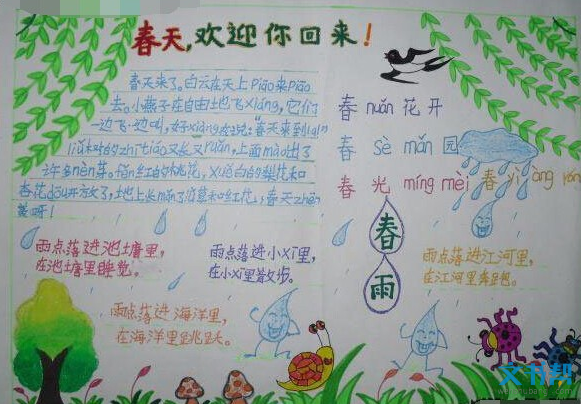 春天,欢迎你回来!
春天来了。白云在天上piāo来piāo
去。小燕子在自由地飞xiáng,它们
一边飞一边叫,好xiàng在说:"春天来到
的zhī tiáo又长又ruǎn,上面mào出了
许多nèn芽。粉红的桃花,xuě白的梨花和
杏花dōu开放了,地上长mǎn了青草和红花,春天zhēn
美呀!
春 nuǎn 花 开
春 sè mǎn 园
春 光 míng mèi 春 yì àng
春
雨
雨点落进池塘里,
在池塘里睡觉。
雨点落进小xī里,
在小xī里散步。
雨点落进江河里,
在江河里奔跑。
雨点落进海洋里,
在海洋里跳跃。
文书帮